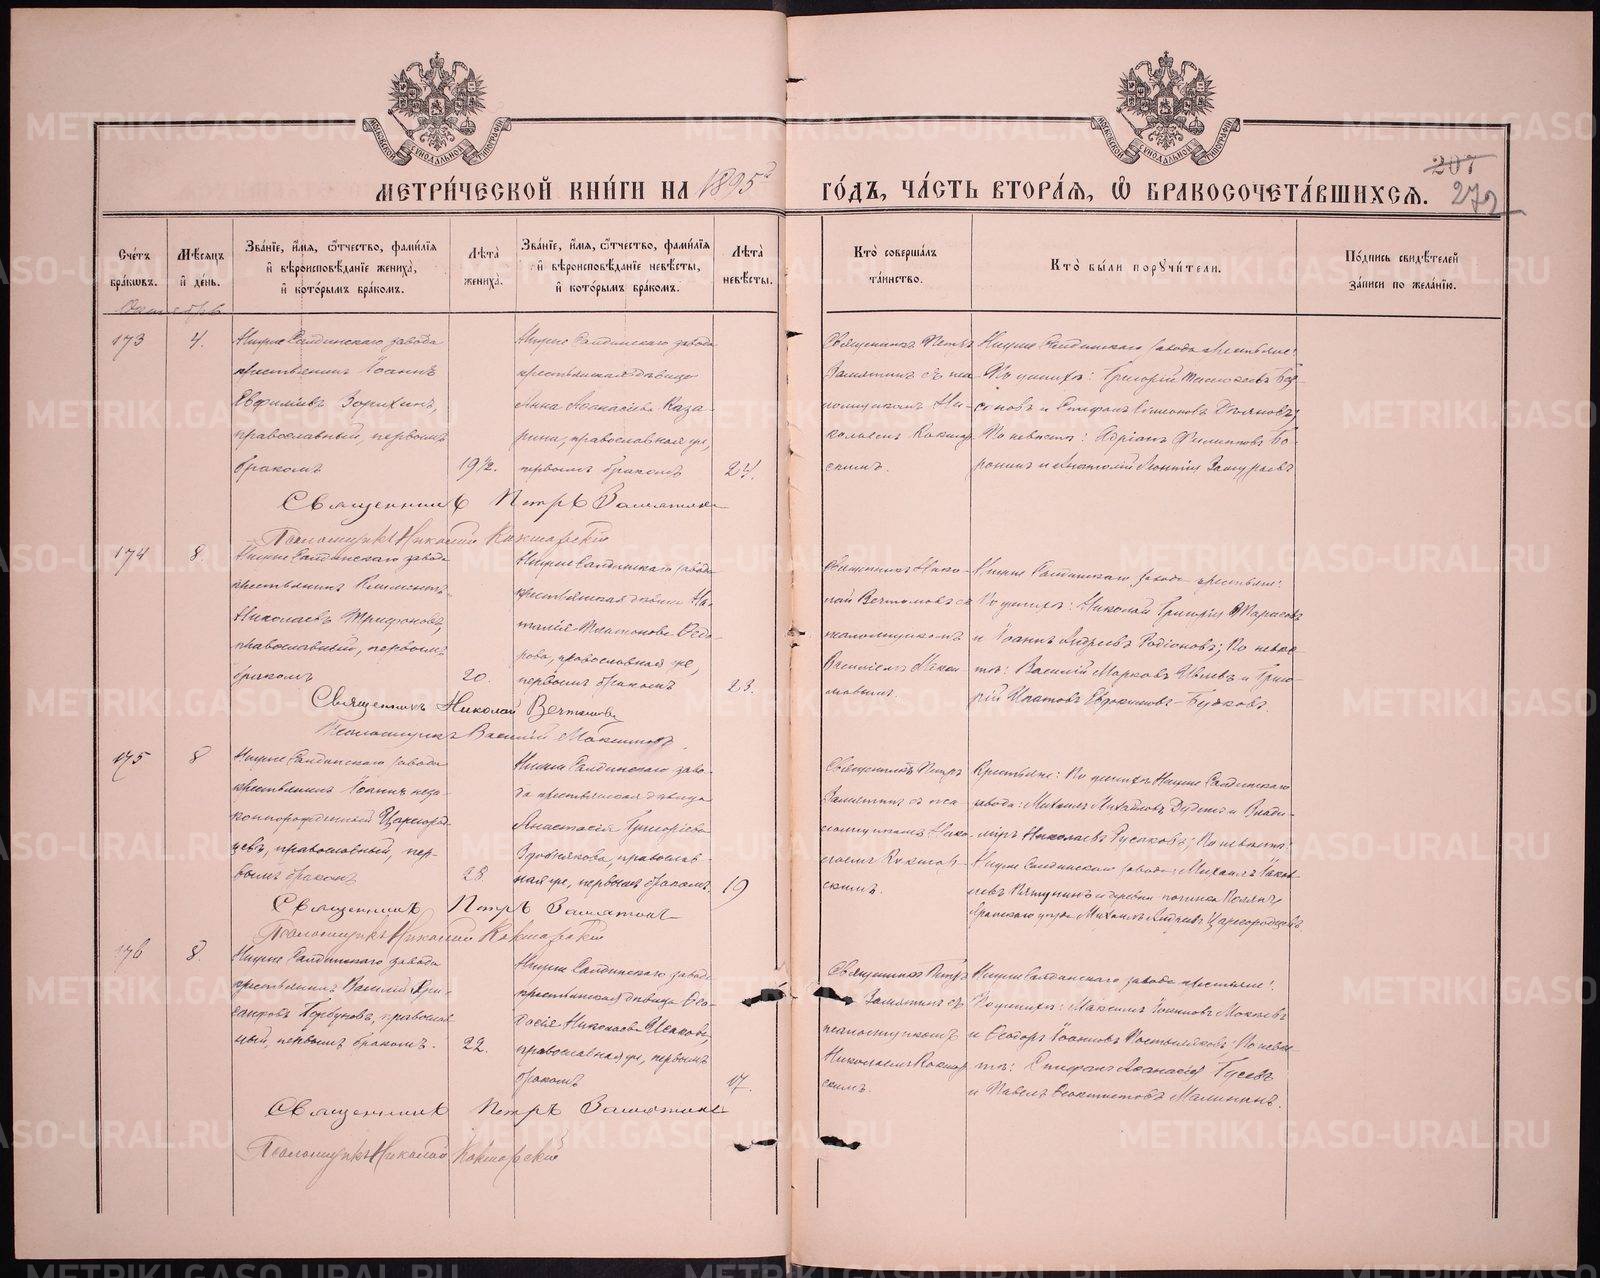 МЕТРИ́ЧЕСКОЙ КНИ́ГИ НА 1895й
ГО́ДЪ, ЧА́СТЬ ВТОРА́Я, Ѡ БРАКОСОЧЕТА́ВШИХСЯ.
207
272
Сче́тъ бра́кѡвъ.
Мѣ́сяцъ и҆ де́нь.
Зва́нїе, и҆́мя, ѻ҆́тчество, фами́лїя и҆ вѣроисповѣ́данїе жениха̀, и҆ кото́рымъ бра́комъ.
Лѣ́та жениха̀.
Зва́нїе, и҆́мя, ѻ҆́тчество, фами́лїя и҆ вѣроисповѣ́данїе невѣ́сты, и҆ кото́рымъ бра́комъ.
Лѣ́та невѣ́сты.
Кто̀ соверша́лъ та́инство.
Кто̀ бы́ли порꙋчи́тели.
По́дпись свидѣ́телей за́писи по жела́нїю.
Октябрь
173
4.
Нижне Салдинскаго завода
крестьянинъ Іоаннъ
Евфиміевъ Зорихинъ,
православный, первымъ
бракомъ
19 1/2.
Нижне Салдинскаго завода
крестьянская дѣвица
Анна Аѳанасіева Каза-
рина, православная же,
первымъ бракомъ
24.
Священникъ Петръ
Замятинъ съ пса-
ломщикомъ Ни-
колаемъ Кокшар-
скимъ.
Нижне Салдинскаго завода крестьяне:
По женихѣ: Григорій
и Стефанъ Симеоновъ
По невѣстѣ: Адріанъ Филипповъ Во-
ронинъ и Анатолій Леонтіевъ
Священникъ Петръ Замятинъ
Псаломщикъ Николай Кокшарскій
174
8.
Нижне Салдинскаго завода
крестьянинъ Климентъ
Николаевъ Трифоновъ,
православный, первымъ
бракомъ
20.
Нижне Салдинскаго завода
крестьянская дѣвица На-
талія Платонова Ѳедо-
рова, православная же,
первымъ бракомъ
23.
Священникъ Нико-
лай Вечтомовъ съ
псаломщикомъ
Василіемъ Макси-
мовымъ.
Нижне Салдинскаго завода крестьяне:
По женихѣ: Николай Григорьевъ Тарасовъ
и Іоаннъ Андреевъ Родіоновъ; По невѣс-
тѣ: Василій Марковъ и Григо-
рій Ипатовъ Евдокимовъ-Бучковъ.
Священникъ Николай Вечтомовъ
Псаломщикъ Василій Максимовъ.
175
8
Нижне Салдинскаго завода
крестьянинъ Іоаннъ неза-
коннорожденный Цареград-
цевъ, православный, пер-
вымъ бракомъ
28.
Нижне Салдинскаго заво-
да крестьянская дѣвица
Анастасія Григоріева
православ-
ная же, первымъ бракомъ.
19
Священникъ Петръ
Замятинъ съ пса-
ломщикомъ Нико-
лаемъ Кокшар-
скимъ.
Крестьяне: По женихѣ Нижне Салдинскаго
завода: Михаилъ Михайловъ и Влади-
міръ Николаевъ Русаковъ; По невѣстѣ:
Нижне Салдинскаго завода: Михаилъ Яков-
левъ и деревни
уѣзда Михаилъ Андреевъ Цареградцевъ
Священникъ Петръ Замятинъ
Псаломщикъ Николай Кокшарскій
176
8.
Нижне Салдинскаго завода
крестьянинъ Василій Хри-
санфовъ Горбуновъ, православ-
ный, первымъ бракомъ.
22.
Нижне Салдинскаго завода
крестьянская дѣвица Ѳео-
досія Николаева Исакова,
православная же, первымъ
бракомъ
17.
Священникъ Петръ
Замятинъ съ
псаломщикомъ
Николаемъ Кокшар-
скимъ.
Нижне Салдинскаго завода крестьяне:
По женихѣ: Максимъ Іоанновъ
и Ѳеодоръ Іоанновъ Постыляковъ; По невѣс-
тѣ: Стефанъ Аѳанасіевъ Гусевъ
и Павелъ Ѳеоктистовъ Малыгинъ.
Священникъ Петръ Замятинъ
Псаломщикъ Николай Кокшарскій